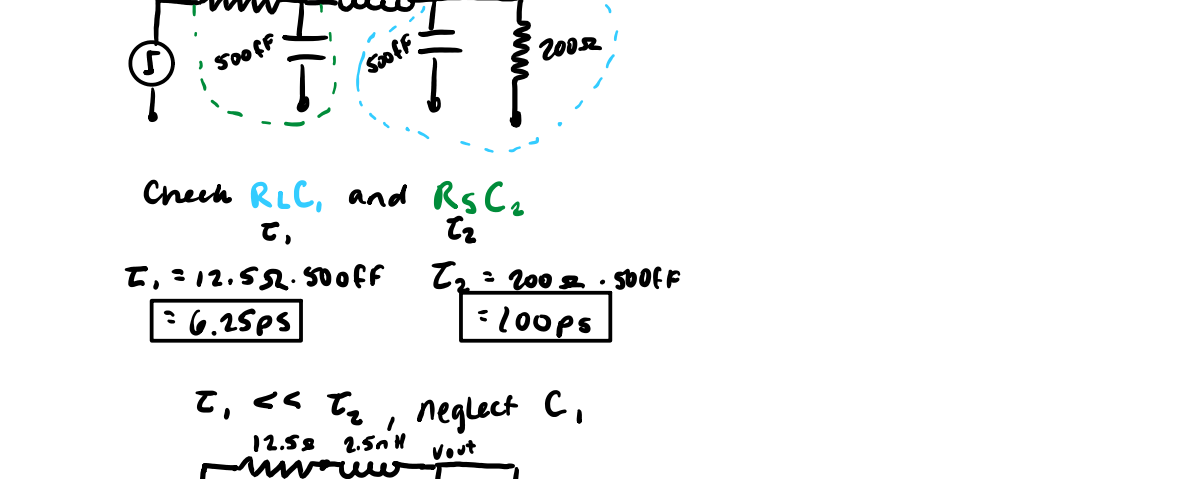 500fF 500fF 200Ω
Check RLC₁ and RSC₂
τ₁ τ₂
τ₁ = 12.5Ω · 500fF τ₂ = 200Ω · 500fF
= 6.25ps = 100ps
τ₁ << τ₂, neglect C₁
12.5Ω 2.5nH Vout